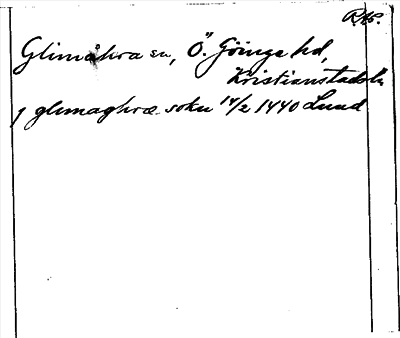 RAp.
Glimåkra sn, Ö. Göinge hd,
Kristianstads l.
j glimaghræ sokn 14/2 1440 Lund